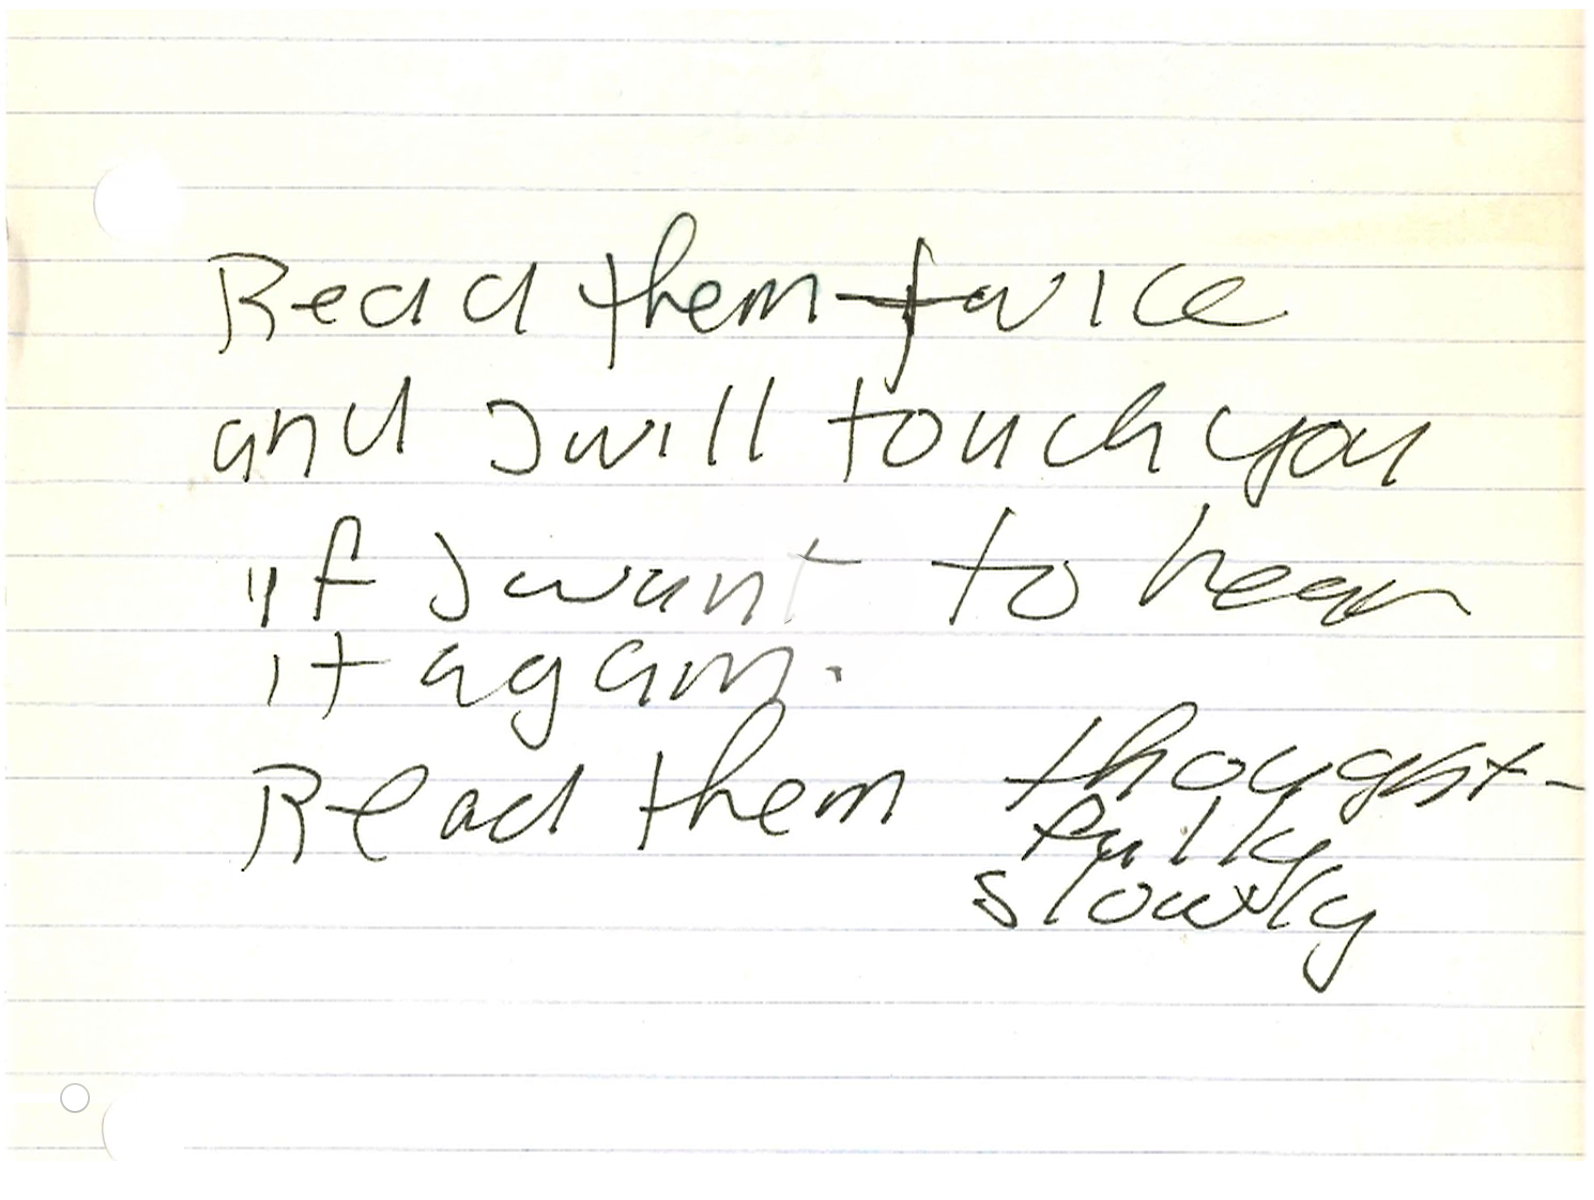 Read them twice
and I will touch you
if I want to hear
it again.
Read them thought-
fully
slowly